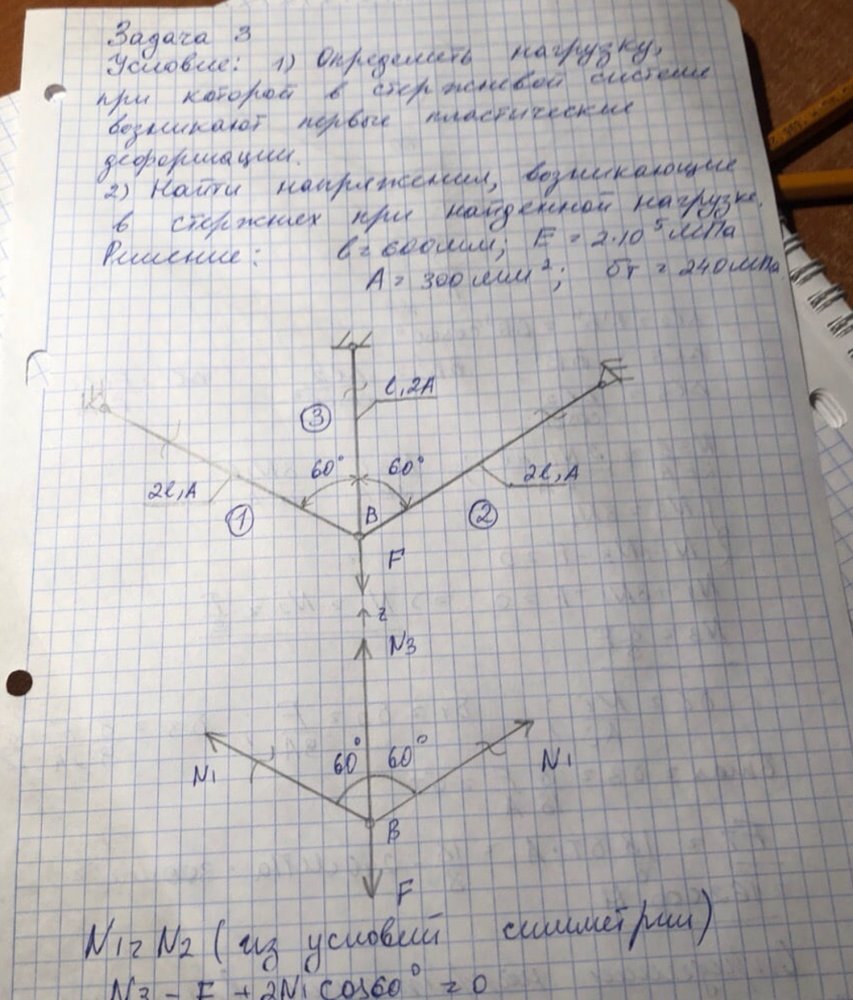 Задача 3
Условие: 1) Определить нагрузку,
при которой в стержневой системе
возникают первые пластические
деформации.
2) Найти напряжения, возникающие
в стержнях при найденной нагрузке.
Решение: l = 600мм; E = 2·10⁵ МПа
A = 300 мм²; σт = 240МПа
l, 2A
3
60° 60°
2l, A
2l, A
1
B
2
F
z
N3
60° 60°
N1
N1
B
F
N1 = N2 (из условий симметрии)
N3 - F + 2N1 cos60° = 0